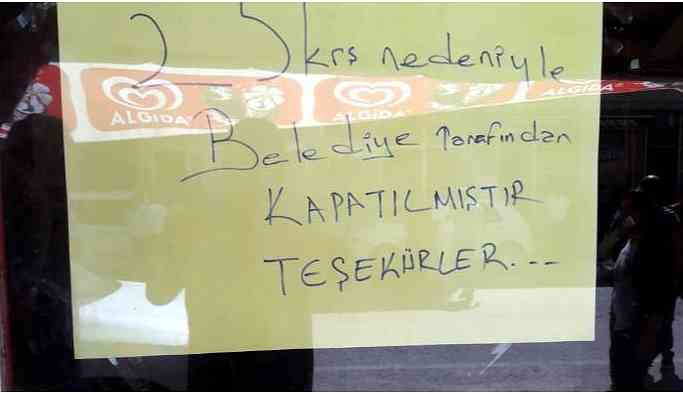 2_5 krş nedeniyle
ALGIDA ALGIDA ALGIDA
Belediye Tarafından
KAPATILMIŞTIR
TEŞEKÜRLER...